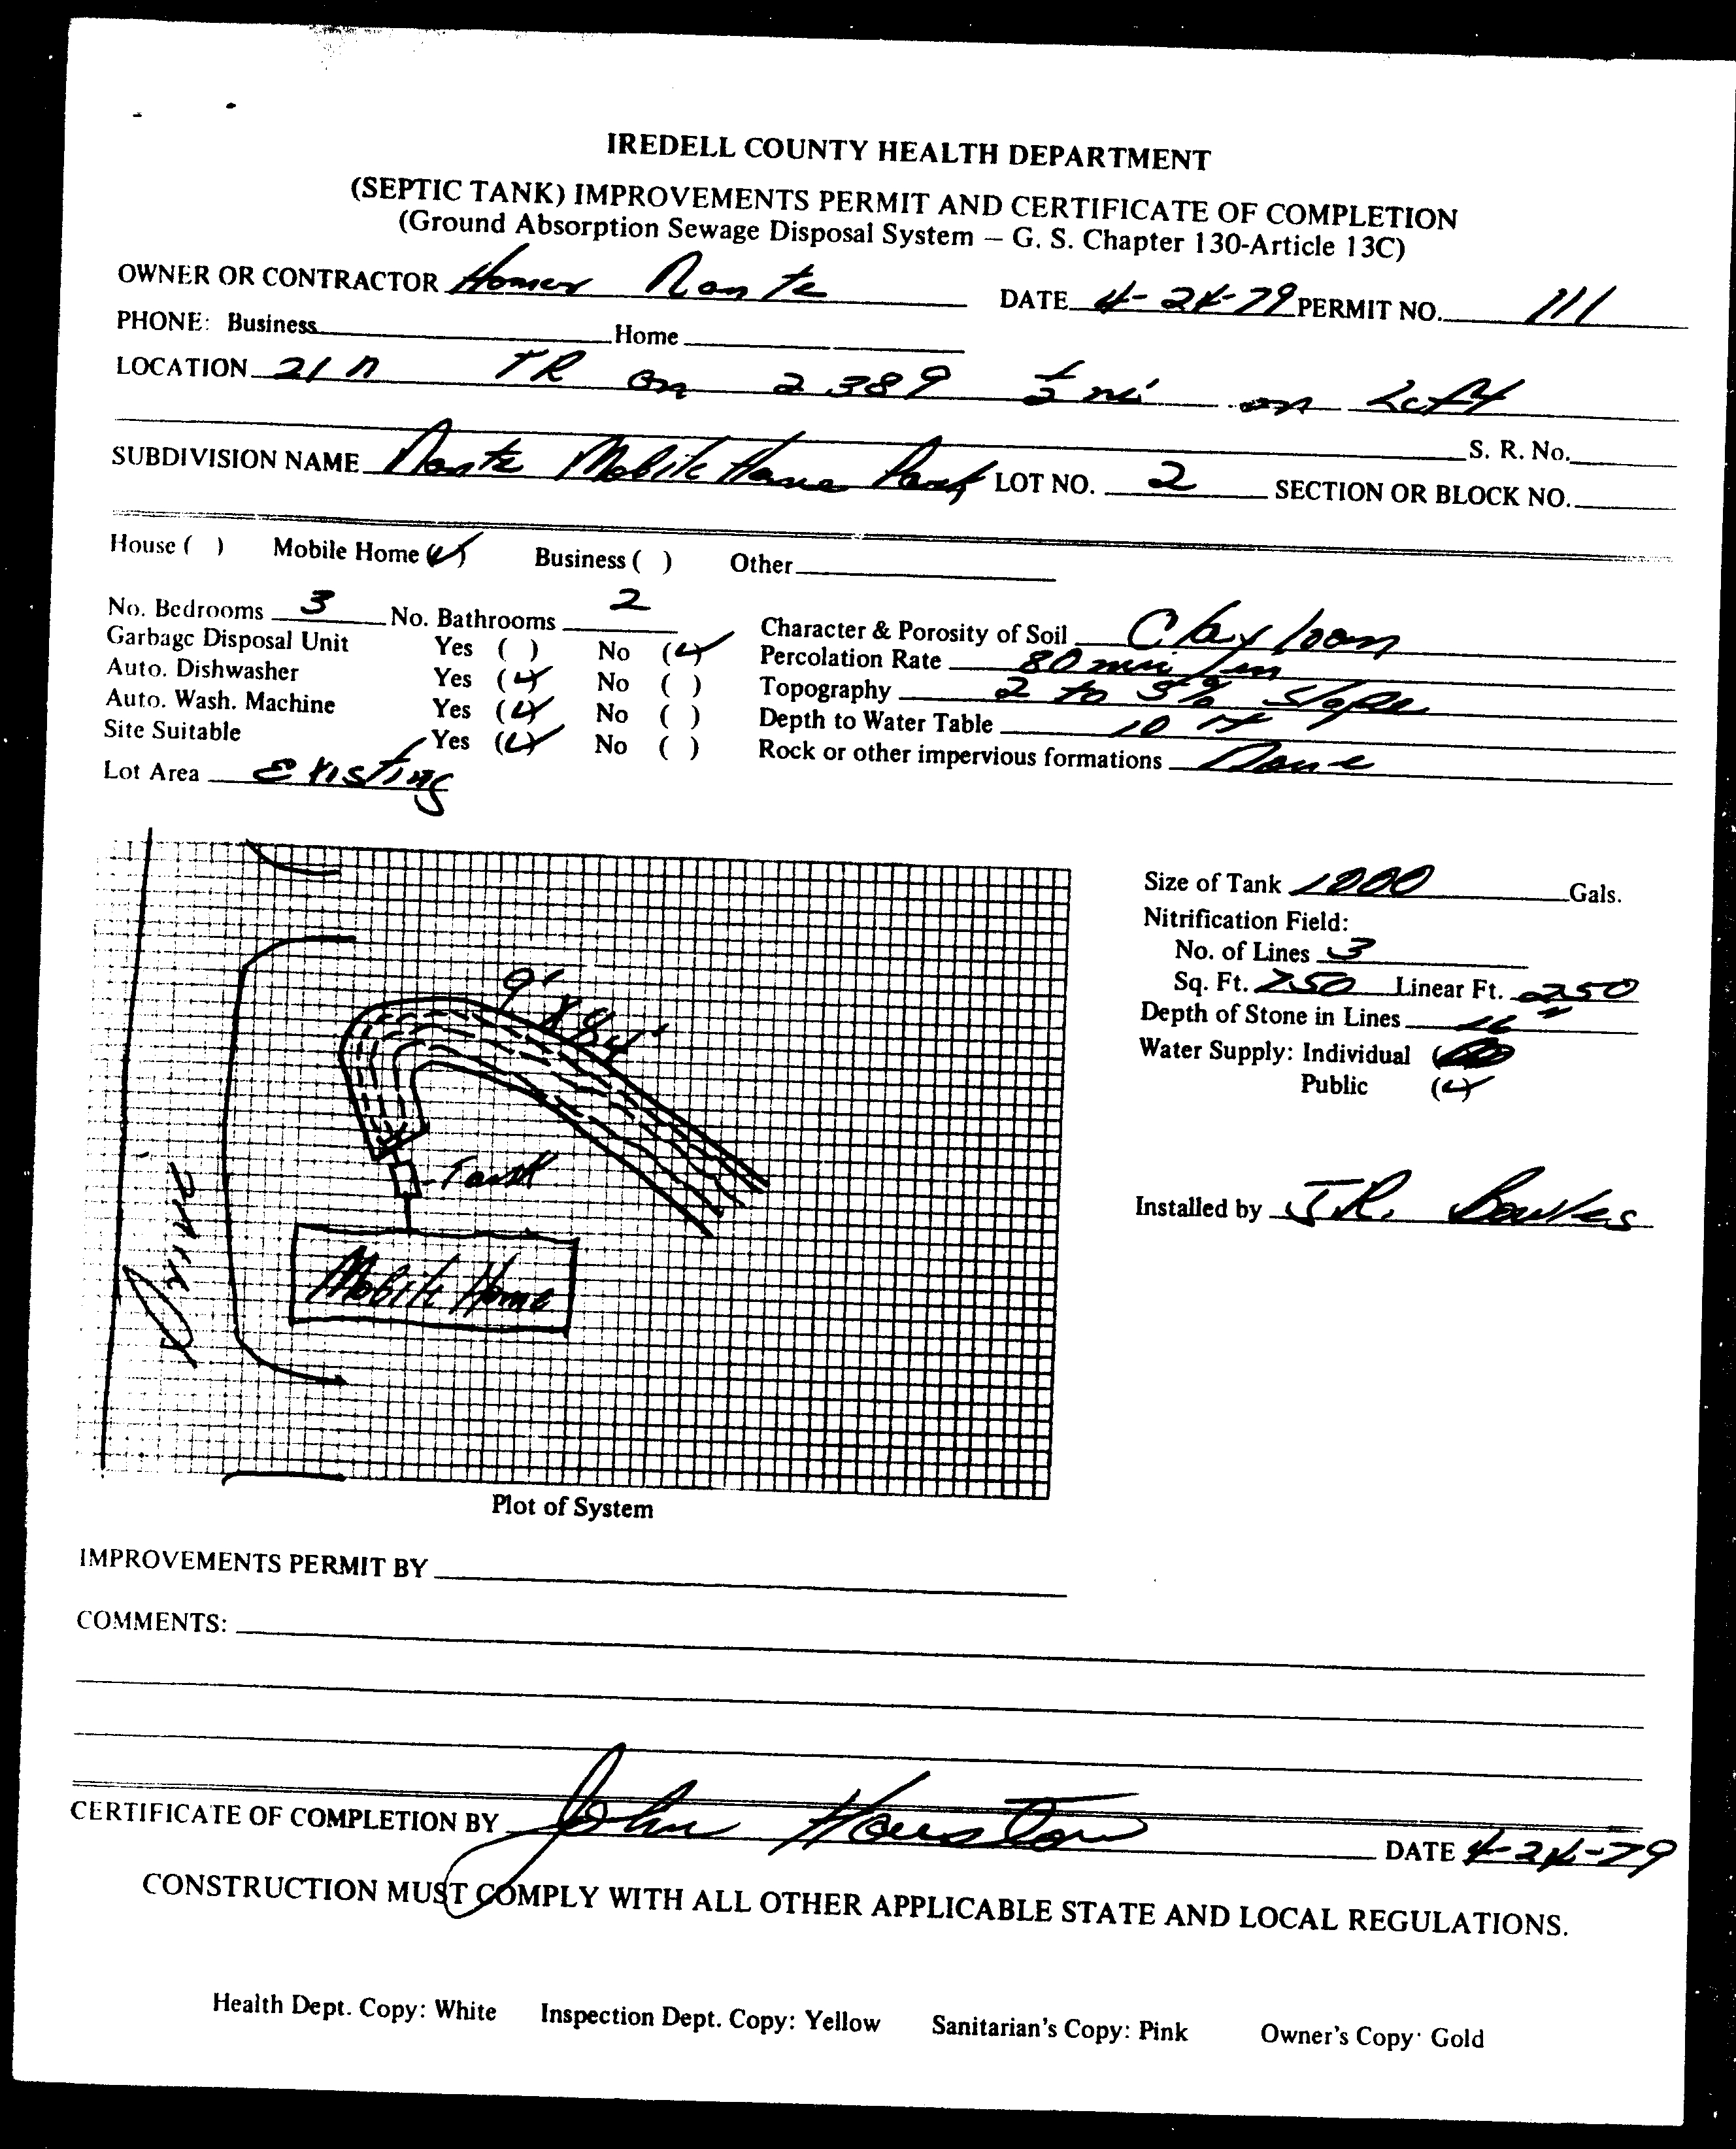 IREDELL COUNTY HEALTH DEPARTMENT
(SEPTIC TANK) IMPROVEMENTS PERMIT AND CERTIFICATE OF COMPLETION
(Ground Absorption Sewage Disposal System – G. S. Chapter 130-Article 13C)
OWNER OR CONTRACTOR Homer DATE 4-24-79 PERMIT NO. 111
PHONE: Business Home
LOCATION 21 n TR on 2389 ½ mi on Left
S. R. No.
SUBDIVISION NAME Mobile Home Park LOT NO. 2 SECTION OR BLOCK NO.
House ( ) Mobile Home (✓) Business ( ) Other
No. Bedrooms 3 No. Bathrooms 2 Character & Porosity of Soil Clay loam
Garbage Disposal Unit Yes ( ) No (✓) Percolation Rate 80 min/in
Auto. Dishwasher Yes (✓) No ( ) Topography 2 to 5% slope
Auto. Wash. Machine Yes (✓) No ( ) Depth to Water Table 10 ft
Site Suitable Yes (✓) No ( ) Rock or other impervious formations None
Lot Area Existing
Size of Tank 1000 Gals.
Nitrification Field:
No. of Lines 3
Sq. Ft. 750 Linear Ft. 250
Depth of Stone in Lines
Water Supply: Individual
Public (✓)
9' x 84'
Tank
Mobile Home
Drive
Installed by J.R. Bowles
Plot of System
IMPROVEMENTS PERMIT BY
COMMENTS:
CERTIFICATE OF COMPLETION BY John Houston DATE 4-24-79
CONSTRUCTION MUST COMPLY WITH ALL OTHER APPLICABLE STATE AND LOCAL REGULATIONS.
Health Dept. Copy: White Inspection Dept. Copy: Yellow Sanitarian's Copy: Pink Owner's Copy: Gold